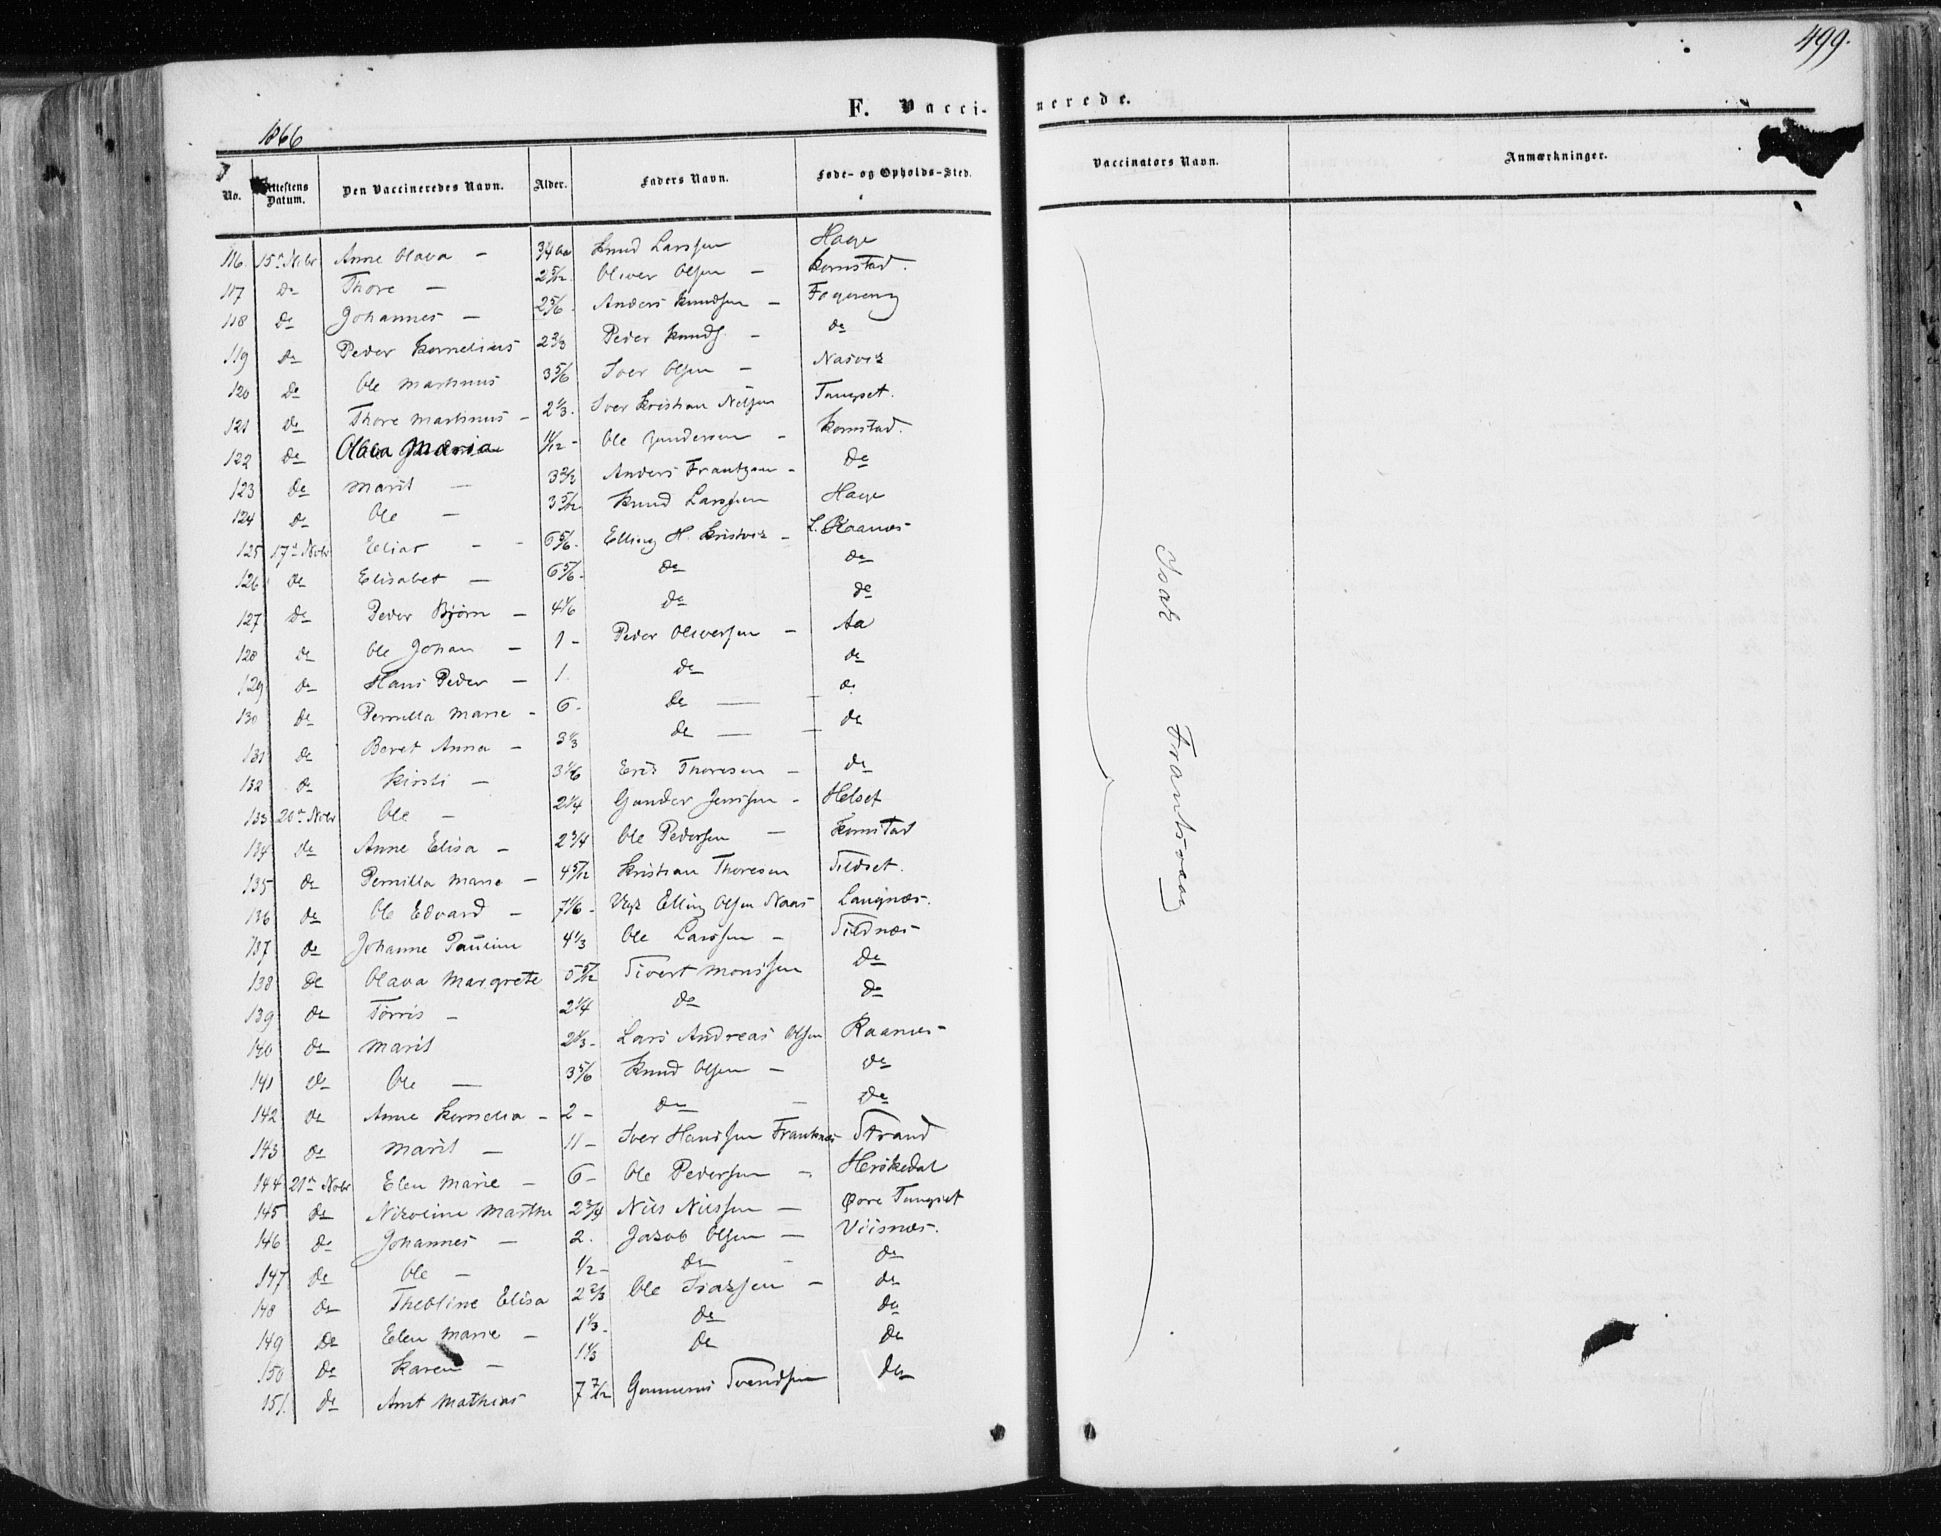 499.
F. Vaccinerede.
1866
No. Attestens Datum. Den Vaccineredes Navn. Alder. Faders Navn. Føde- og Opholds-Sted. Vaccinators Navn. Anmærkninger.
116. 15de Novbr Anne Olava - Knud Larssen Hage
117 do Thore - 2 5/12. Oliver Olsen - Kornstad.
118 do Johannes - 2 5/6. Anders Knudsen - Fagereng
119 do Peder Kornelius 2 2/3 Peder Knuds. - do
120 do Ole Martinus 3 5/6 Iver Olsen - Nasvik
121 do Thore Martinus - 2 1/3. Iver Kristian Nilsen Tangset.
122 do Olava Maria 11/12 - Ole Gundersen - Kornstad.
123 do Marit - 3 2/3 Anders Frantzen - do
124 do Ole - 3 5/12 Knud Larssen Hage
125 17de Novbr Elias - - 6 5/6. Elling H. Kristvik - L. Raanes
126 do Elisabet - 6 5/6. do do
127 do Peder Bjørn - 4 1/6 do do
128 do Ole Johan - 1 - Peder Oliversen - Aa
129 do Hans Peder - 1. do do
130 do Pernilla Marie - 6 - do - do
131 do Beret Anna - 3 1/3 do - do
132 do Kirsti - 3 1/6 Erik Thoresen - do
133 20de Novbr Ole - 2 1/4 Gunder Jenssen - Helset
134 do Anne Elisa - 2 3/4 Ole Pedersen - Kornstad
135 do Pernilla Marie - 4 5/12 Kristian Thoresen Sildset.
136 do Ole Edvard - 7 1/6 - Elling Olsen Naas Langnæs.
137 do Johanne Pauline 4 1/3 Ole Larssen - Sildnæs
138 do Olava Margrete 5 5/12 Sivert Monssen do
139 do Tørris - 2 1/4 do do
140 do Marit 2 1/3 - Lars Andreas Olsen Raanes
141 do Ole - 3 5/6 Knud Olsen - do
142 do Anne Kornelia - 2 - do - do
143 do Marit - 11 - Iver Hanssen Strand
144 21de Novbr Elen Marie - 6 - Ole Pedersen - Heriskedal
145 do Nikoline Marthe 2 3/4 Nils Nilssen - Øvre Tangset
146 do Johannes - 2. Jakob Olsen - Viisnæs.
147 do Ole - 1/2 - do - do
148 do Theoline Elisa 2 2/3 Ole Isaksen - do
149 do Elen Marie - 1 1/3. do do
150 do Karen - 1 1/3 do do
151. do Arnt Mathias 7 7/12 Gunnerus Svendsen do
Isak Frantsvaag